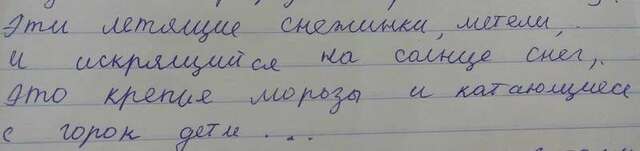 Эти летящие снежинки, метели,
и искрящийся на солнце снег,
Это крепие морозы и катающиеся
с горок дети ...